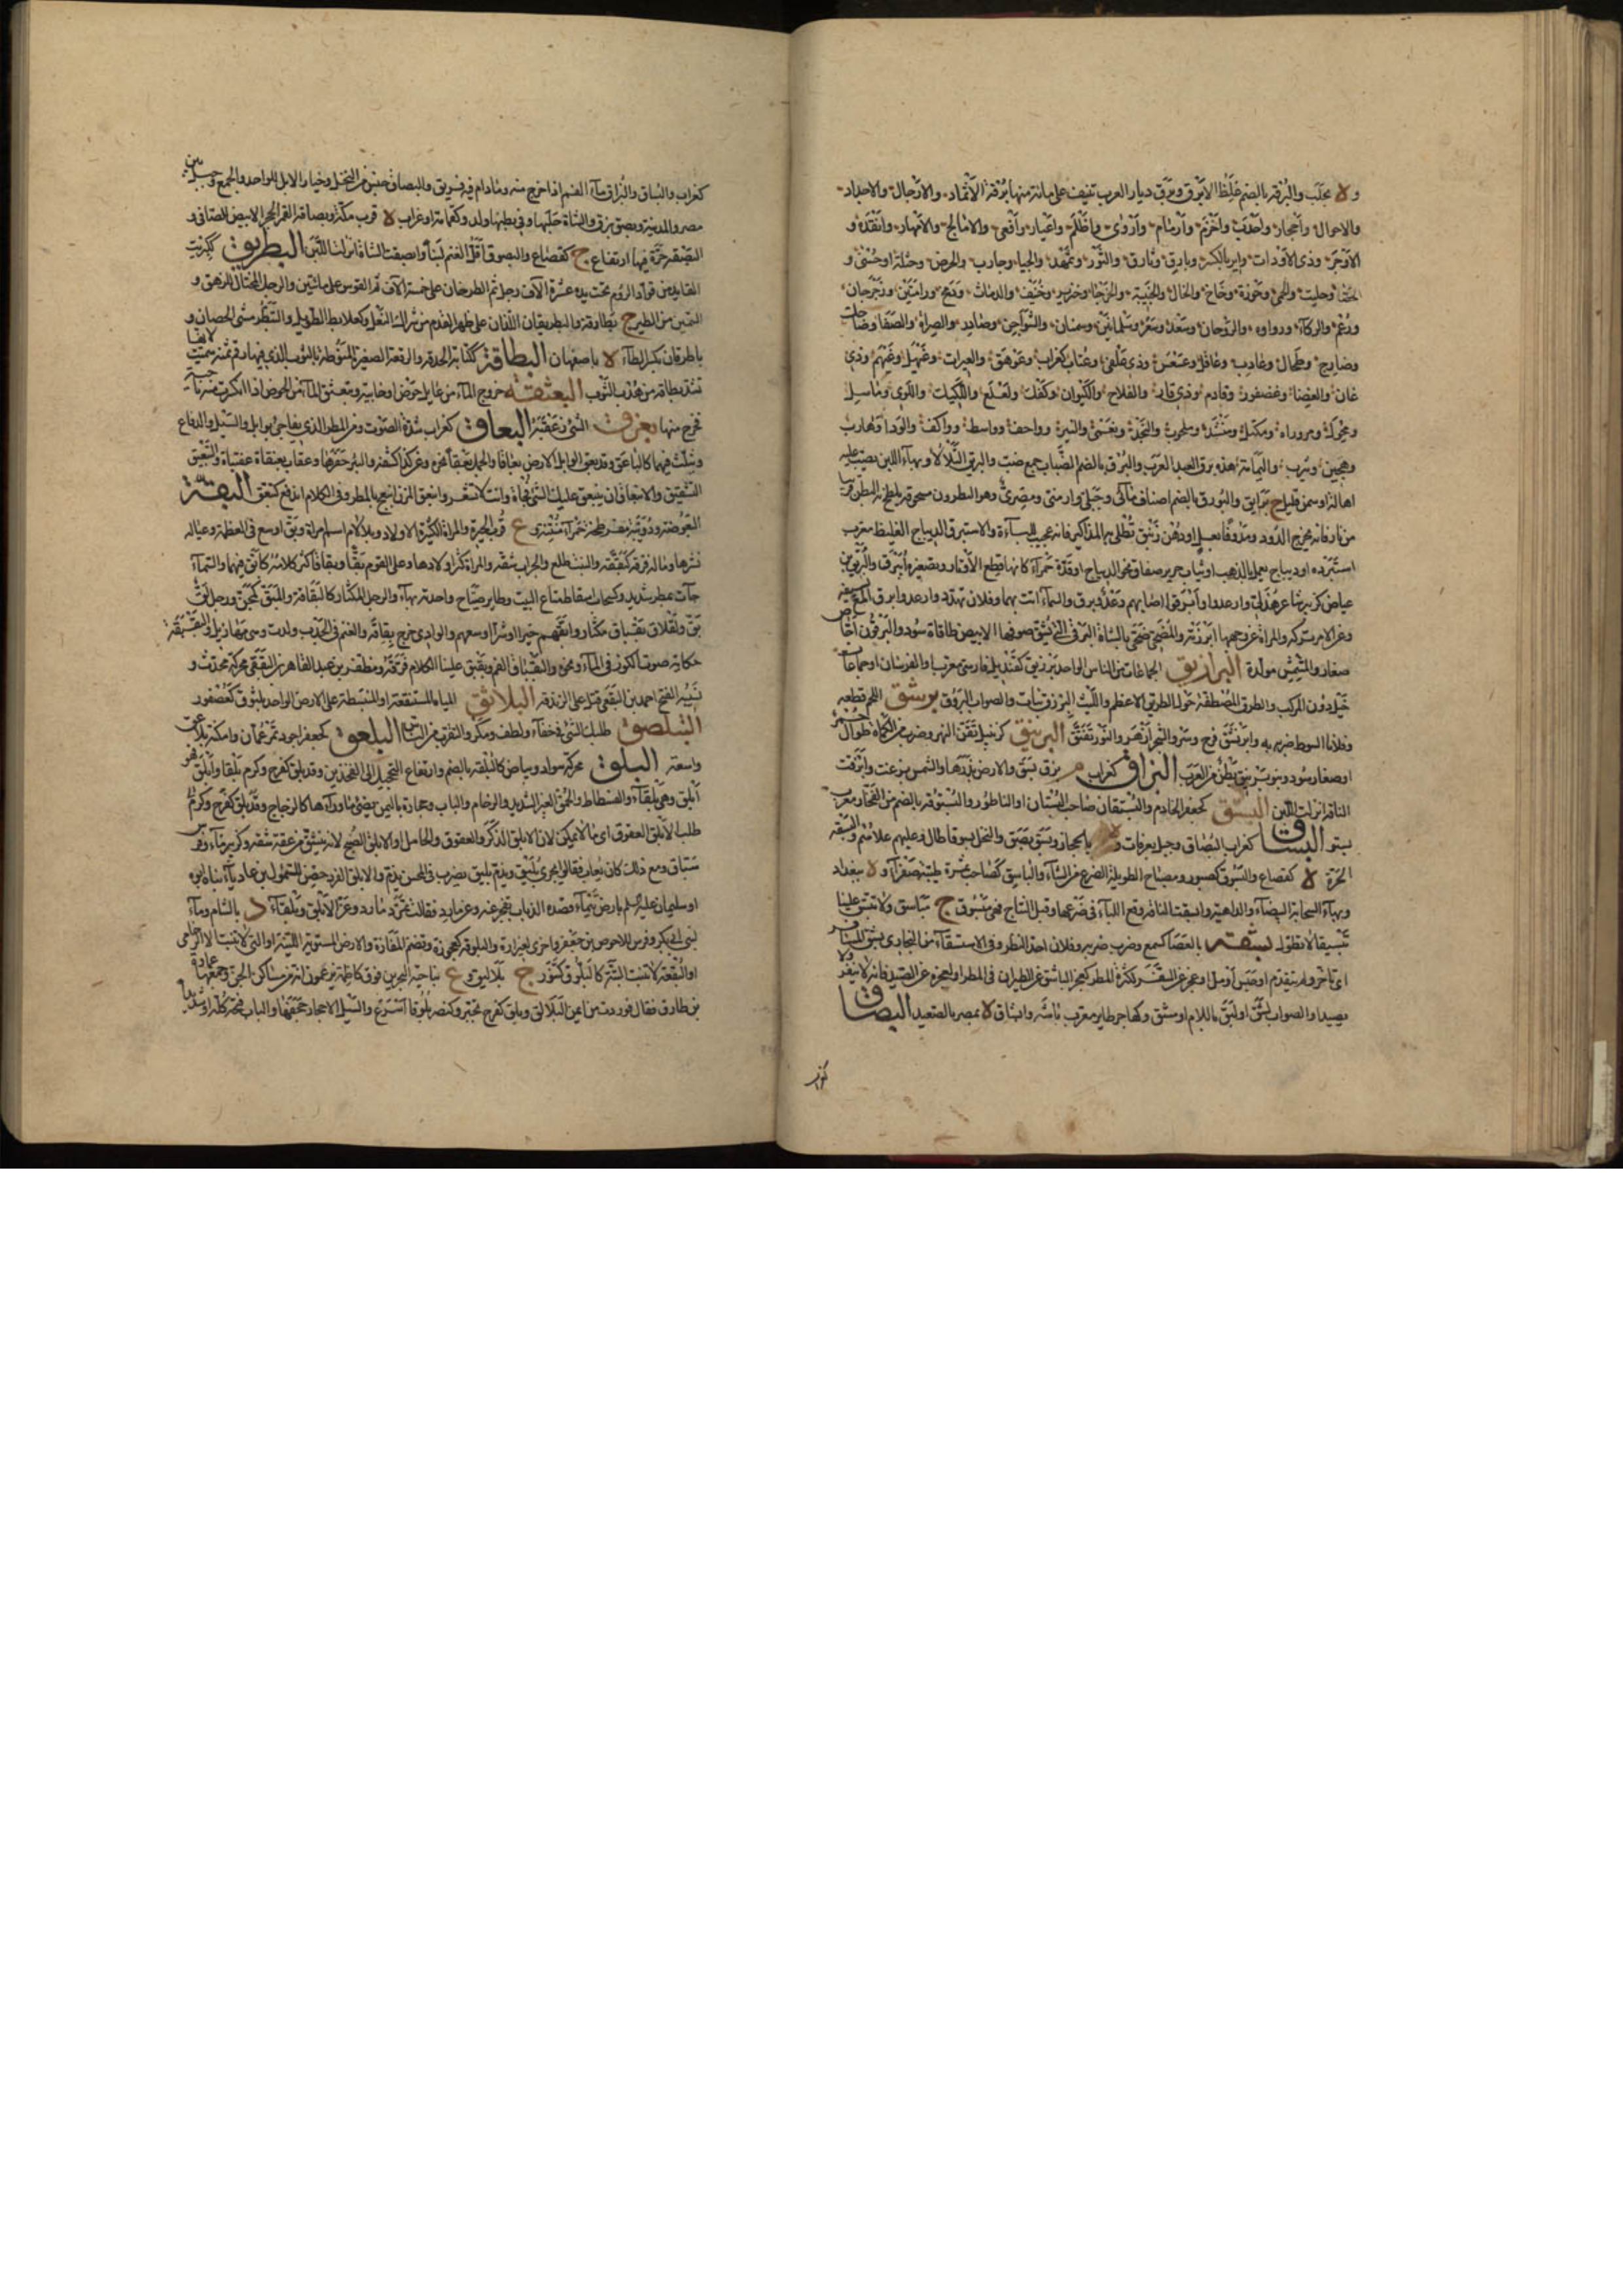 و ة بحلب والبرقة بالضم غلظ الابرق وبرق ديار العرب تنيف على مائة منها برقة الاثماد والاوجال والاجداد
والاحوال واحجار واحدب واخرم وارمام واروى واظلم واعيار وافعى والامالح والامهار وانقد و
الاوجر وذى الاودات واير بالكسر وبارق وثادق والثور وثهمد والجبا وحارب والحرض وحسلة او حسنى و
وحليت والحمى وحوزة وخاخ والخال والخرجا وخنزير وخينف والداث ودمخ ورامتين ورحرحان
ورعم والركاء ورواوه والروحان وسعد وسعر وسلمانين وسمنان والشواجن وصادر والصراة والصفا وضاحك
وضارج وطحال وعاذب وعاقل وعسعس وذى علقى وعناب كغراب وعوهق والعيرات وعيهل وعيهم وذى
غان والغضا وغضور وقادم وذى قار والقلاخ والكبوان ولعلع واللكيك واللوى وماسل
ومجول ومروراة ومكتل ومنشد وملحوب والنجد ونعمى والنير وواحف وواسط وواكف والوداء وهارب
وهجين ويثرب واليمامة هذه برق العرب والبرق بالضم الضباب جمع ضب
اهالة او سمن قليل ج برايق والبورق بالضم اصناف مائى وجبلى وارمنى ومصرى وهو النطرون
من نار فانه يخرج الدود ومدوفا بعسل او دهن زنبق تطلى به المذاكير فانه عجيب للباءة والاستبرق الديباج الغليظ معرب
استبره او ديباج يعمل بالذهب او ثياب حرير صفاق نحو الديباج او قدة حمراء كانها قطع الاوتار وتصغيره ابيرق والبريق بن
عياض كزبير شاعر هذلى وارعدوا وابرقوا اصابهم رعد وبرق والسماء اتت بهما وفلان تهدد واوعد وابرق
وعن الامر تركه والمراة عن وجهها ابرزته والمضحى ضحى بالشاة البرقاء اى التى يشق صوفها الابيض طاقاة سود والبرقوق اجاص
صغار والمشمش مولدة البرازيق الجماعات من الناس الواحد برزيق كقنديل فارسى معرب والفرسان او جماعات
خيل دون المركب والطرق المصطفة حول الطريق الاعظم والليث البرزق نبات والصواب البروق برشق اللحم قطعه
وفلانا السوط ضربه به وابرنشق فرح وسر والشجر ازهر والنور تفتق البرنيق كزنبيل تقن النهر وضرب من الكماة طوال حمر
او صغار سود وبنو برنيق بطن من العرب البزاق كغراب م بزق بسق والارض بذرها والشمس بزغت وابزقت
الناقة انزلت اللبن البستق كجعفر الخادم والبستقان صاحب البستان او الناطور والبستوقة بالضم من الفخار معرب
بستو البساق كغراب البصاق وجبل بعرفات و د بالحجاز وبسق بصق والنخل بسوقا طال وعليهم علاهم والبسقة
الحرة ة كقصاع والبسوق كصبور ومصباح الطويلة الضرع من الشاء والباسق كصاحب ثمرة طيبة صفراء و ة ببغداد
وبهاء السحابة البيضاء والداهية وابسقت الناقة وقع اللباء فى ضرعها قبل النتاج فهى مبسوق ج مباسق ولا تبسق علينا
تبسيقا لا تطول بشقه بالعصا كسمع وضرب ضربه وفلان احد النظر وفى الاستسقاء من البخارى بشق المسافر
اى تاخر ولم يتقدم او حبس او مل او عجز عن السفر لكثرة المطر كعجز الباشق عن الطيران فى المطر او لعجزه عن الصيد فانه ينفر ولا
يصيد او الصواب لشق او لثق باللام او مشق وكهاجر طاير معرب باشه وابشاق ة بمصر بالصعيد البصاق
كغراب
كغراب والبساق والبزاق ماء الفم اذا خرج منه ومادام فيه فهو ريق والبصاق جنس من النخل وخيار الابل للواحد والجمع وجبل بين
مصر والمدينة وبصق بزق والشاة حلبها وفى بطنها ولد وكثمامة او غراب ة قرب مكة وبصاقة القمر الحجر الابيض الصافى و
البصقة حرة فيها ارتفاع ج كقصاع والبصوق اقل الغنم لبنا وابصقت الشاة انزلت اللبن البطريق ككبريت
القايد من قواد الروم تحت يده عشرة الاف رجل ثم الطرخان على خمسة الاف ثم القومس على مائتين والرجل المختال المزهو و
السمين من الطير ج بطارقة والبطريقان اللذان على ظهر القدم من شراك النعل وكعلابط الطويل والتبطرق مشى الحصان و
باطرقان بكسر الطاء ة باصفهان البطاقة ككتابة الحدقة والرقعة الصغيرة المنوطة بالثوب التى فيها رقم ثمنه سميت لانها
تشد بطاقة من هدب الثوب البعثقة خروج الماء من غايل حوض او خابية وتبعثق الماء من الحوض اذا انكسرت منه ناحية
فخرج منها بعزق الشئ زعبقه البعاق كغراب شدة الصوت ومن المطر الذى يفاجئ بوابل والسيل والدفاع
ويثلث فيهما كالباعق وقد بعق الوابل الارض بعاقا والجمل بعقا نحره وعن كذا كشفه والبئر حفرها وعقاب بعنقاة عقنباة والتبعيق
التشقيق والانبعاق ان ينبعق عليك الشئ فجاة وانت لا تشعر وانبعق المزن انبعج بالمطر وفى الكلام اندفع كتبعق البقة
البعوضة ودويبة مفرطحة حمراء منتنة و ع قرب الحيرة والمراة الكثيرة الاولاد وبلا لام اسم امراة وبق اوسع فى العطية وعياله
نشرها وماله فرقه كبققه والنبت طلع والجراب شقه والمراة كثر اولادها وعلى القوم بقا وبقاقا كثر كلامه كابق فيهما والسماء
جاءت بمطر شديد وكسحاب اسقاط متاع البيت وطاير صياح واحدته بهاء والرجل المكثار كالبقاقة والمبق كمجن ورجل لق
بق ولقلاق بقباق مكثار وابقهم خيرا او شرا اوسعهم والوادى خرج بقاقه والغنم فى الجدب ولدت وهى مهازيل والبقبقة
حكاية صوت الكوز فى الماء ونحوه والبقباق الفم وبقبق علينا الكلام فرقه ومظفر بن عبد القاهر بن البققى محركة محدث و
نسيبه الفتح احمد بن البققى قتل على الزندقة البلاثق المياه المستنقعة او المنبسطة على الارض الواحد بلثوق كعصفور
التبلصق طلبك الشئ فى خفاء ولطف ومكر والتقرب من الناس البلعق كجعفر اجود تمر عمان وامكنة بلاعق
واسعة البلق محركة سواد وبياض كالبلقة بالضم وارتفاع التحجيل الى الفخذين وقد بلق كفرح وكرم بلقا وابلق فهو
ابلق وهى بلقاء والفسطاط والحمق الغير الشديد والرخام والباب وحجارة باليمن تضئ ما وراءها كالزجاج وقد بلق كفرح وكرم و
طلب الابلق العقوق اى ما لا يمكن لان الابلق الذكر والعقوق والحامل او الابلق الصبح لانه ينشق من عقه شقه وكزبير ماء وفرس
سباق ومع ذلك كان يعاب فقالوا يجرى بليق ويذم بليق يضرب فى المحسن يذم والابلق الفرد حصن للسموأل بن عاديا بناه ابوه
او سليمان عليه السلم بارض تيماء قصدته الزباء فعجزت عنه وعن مارد فقالت تمرد مارد وعز الابلق وبلقاء د بالشام وماء
لبنى ابى بكر وفرس للاحوص بن جعفر واخرى لعنزة والبلوقة كعجوزة ويضم المفازة والارض المستوية اللينة او التى لا تنبت الا الرخامى
او البقعة لا تنبت البتة كالبلوق كتنور ج بلاليق و ع بناحية البحرين فوق كاظمة يزعمون انه من مساكن الجن وجمعها عمارة
بن طارق فقال فوردت من ايمن البلالق وبلق كفرح تحير وكنصر بلوقا اسرع والسيل الاحجار جحفها والباب فتحه كله او شديدا